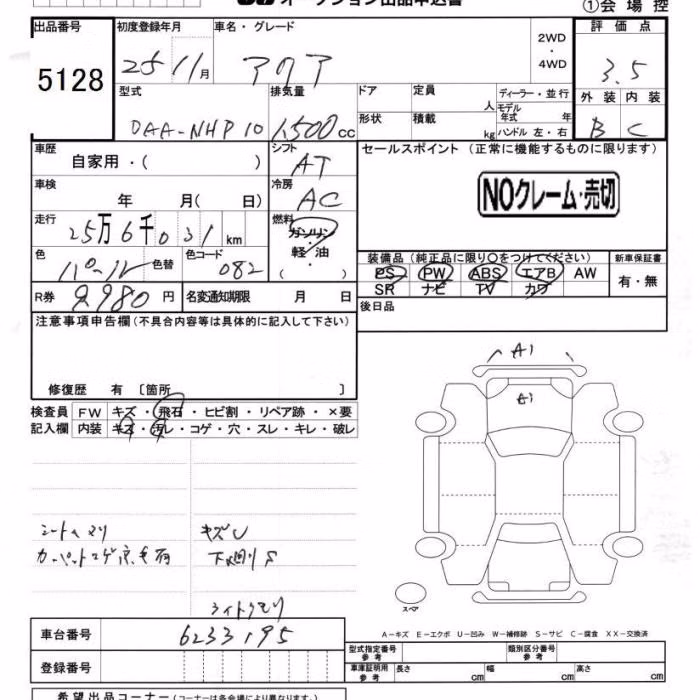 オークション出品申込書
①会場控
出品番号 初度登録年月 車名・グレード 2WD・4WD 評価点
5128 25 11月 アクア 3.5
型式 排気量 ドア 定員 人 ディーラー・並行 外装 内装
DAA-NHP10 1,500cc 形状 積載 kg モデル年式 年 ハンドル 左・右 B C
車歴 自家用・( ) シフト AT セールスポイント (正常に機能するものに限ります)
車検 年 月(日) 冷房 AC NOクレーム・売切
走行 25万6千031km 燃料 ガソリン 軽油 ・( )
色 パール 色替 色コード 082 装備品(純正品に限り○をつけてください) 新車保証書
PS PW ABS エアB AW 有・無
SR ナビ TV カワ
R券 9980円 名変通知期限 月 日 後日品
注意事項申告欄(不具合内容等は具体的に記入して下さい)
A1
A1
修復歴 有 [箇所 ]
検査員 FW キズ・飛石・ヒビ割・リペア跡・×要
記入欄 内装 キズ・汚レ・コゲ・穴・スレ・キレ・破レ
キズU
下廻りS
ライトクモリ
スペア
A-キズ E-エクボ U-凹み W-補修跡 S-サビ C-腐食 XX-交換済
車台番号 6233195
登録番号
型式指定番号 参考 類別区分番号 参考
車庫証明用 参考 長さ cm 幅 cm 高さ cm
希望出品コーナー(コーナーは各会場により異なります)